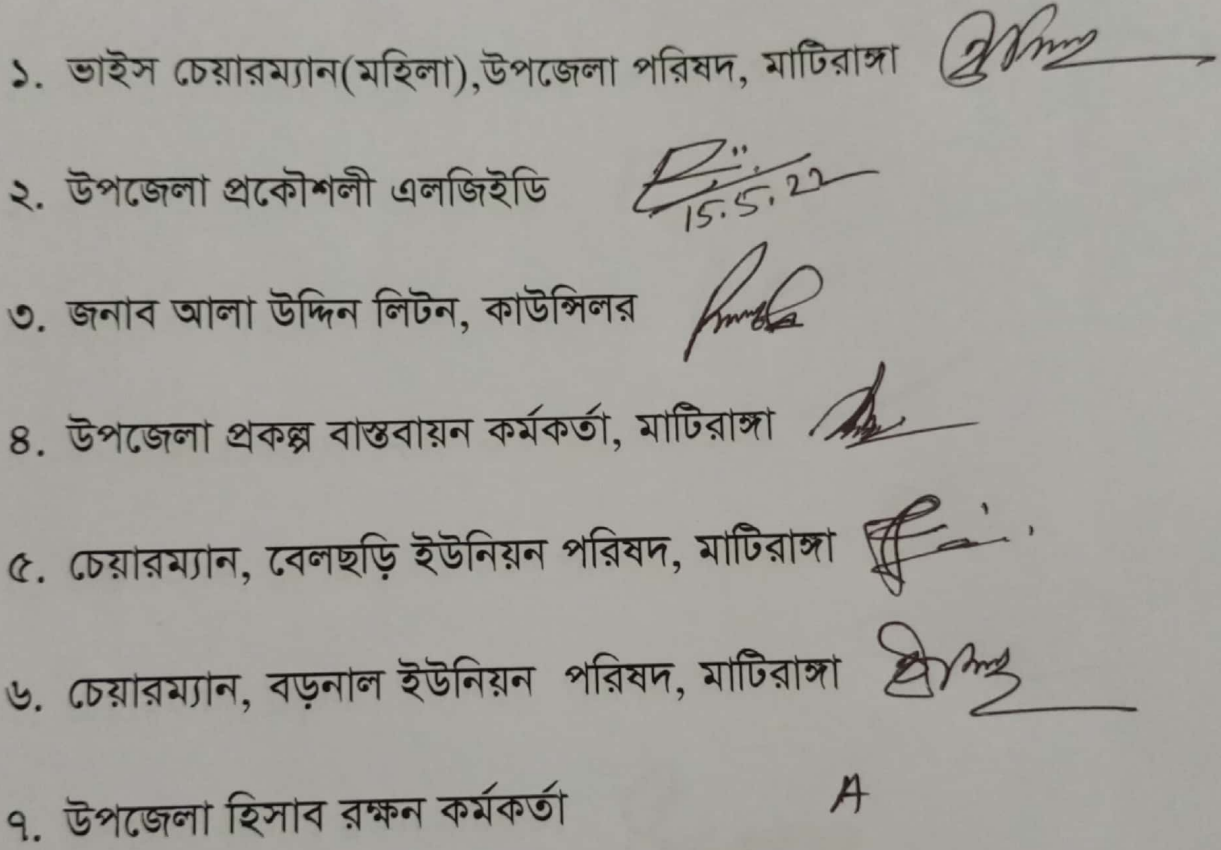 ১. ভাইস চেয়ারম্যান(মহিলা),উপজেলা পরিষদ, মাটিরাঙ্গা
২. উপজেলা প্রকৌশলী এলজিইডি
15.5.22
৩. জনাব আলা উদ্দিন লিটন, কাউন্সিলর
৪. উপজেলা প্রকল্প বাস্তবায়ন কর্মকর্তা, মাটিরাঙ্গা
৫. চেয়ারম্যান, বেলছড়ি ইউনিয়ন পরিষদ, মাটিরাঙ্গা
৬. চেয়ারম্যান, বড়নাল ইউনিয়ন পরিষদ, মাটিরাঙ্গা
৭. উপজেলা হিসাব রক্ষন কর্মকর্তা A